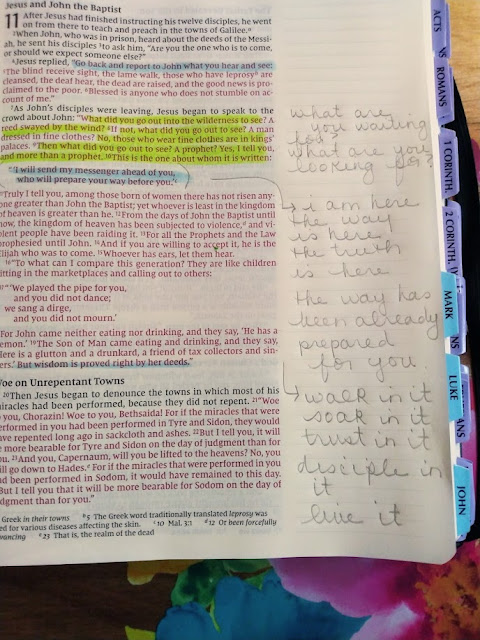 Jesus and John the Baptist
11 After Jesus had finished instructing his twelve disciples, he went
on from there to teach and preach in the towns of Galilee.ᵃ
²When John, who was in prison, heard about the deeds of the Messi-
ah, he sent his disciples ³to ask him, "Are you the one who is to come,
or should we expect someone else?"
⁴Jesus replied, "Go back and report to John what you hear and see:
⁵The blind receive sight, the lame walk, those who have leprosyᵇ are
cleansed, the deaf hear, the dead are raised, and the good news is pro-
claimed to the poor. ⁶Blessed is anyone who does not stumble on ac-
count of me."
⁷As John's disciples were leaving, Jesus began to speak to the
crowd about John: "What did you go out into the wilderness to see? A
reed swayed by the wind? ⁸If not, what did you go out to see? A man
dressed in fine clothes? No, those who wear fine clothes are in kings'
palaces. ⁹Then what did you go out to see? A prophet? Yes, I tell you,
and more than a prophet. ¹⁰This is the one about whom it is written:
"'I will send my messenger ahead of you,
who will prepare your way before you.'ᶜ
Truly I tell you, among those born of women there has not risen any-
one greater than John the Baptist; yet whoever is least in the kingdom
of heaven is greater than he. ¹²From the days of John the Baptist until
now, the kingdom of heaven has been subjected to violence,ᵈ and vi-
olent people have been raiding it. ¹³For all the Prophets and the Law
prophesied until John. ¹⁴And if you are willing to accept it, he is the
Elijah who was to come. ¹⁵Whoever has ears, let them hear.
¹⁶"To what can I compare this generation? They are like children
sitting in the marketplaces and calling out to others:
¹⁷"'We played the pipe for you,
and you did not dance;
we sang a dirge,
and you did not mourn.'
For John came neither eating nor drinking, and they say, 'He has a
demon.' ¹⁹The Son of Man came eating and drinking, and they say,
'Here is a glutton and a drunkard, a friend of tax collectors and sin-
ners.' But wisdom is proved right by her deeds."
Woe on Unrepentant Towns
²⁰Then Jesus began to denounce the towns in which most of his
miracles had been performed, because they did not repent. ²¹"Woe
to you, Chorazin! Woe to you, Bethsaida! For if the miracles that were
performed in you had been performed in Tyre and Sidon, they would
have repented long ago in sackcloth and ashes. ²²But I tell you, it will
be more bearable for Tyre and Sidon on the day of judgment than for
you. ²³And you, Capernaum, will you be lifted to the heavens? No, you
will go down to Hades.ᵉ For if the miracles that were performed in you
had been performed in Sodom, it would have remained to this day.
But I tell you that it will be more bearable for Sodom on the day of
judgment than for you."
Greek in their towns ᵇ5 The Greek word traditionally translated leprosy was
used for various diseases affecting the skin. ᶜ10 Mal. 3:1 ᵈ12 Or been forcefully
advancing ᵉ23 That is, the realm of the dead
what are
you waiting
for
what are you
looking for?
i am here
the way
is here
the truth
is here
the way has
been already
prepared
for you
walk in it
soak in it
trust in it
disciple in
it
live it
ACTS
ROMANS
1 CORINTH.
2 CORINTH.
MARK
LUKE
JOHN